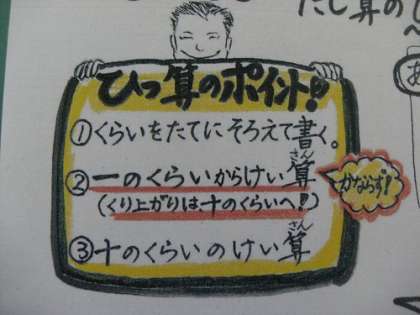 たし算の
ひっ算のポイント!!
①くらいをたてにそろえて書く。
さん
②一のくらいからけい算
かならず!
(くり上がりは十のくらいへ!)
さん
③十のくらいのけい算